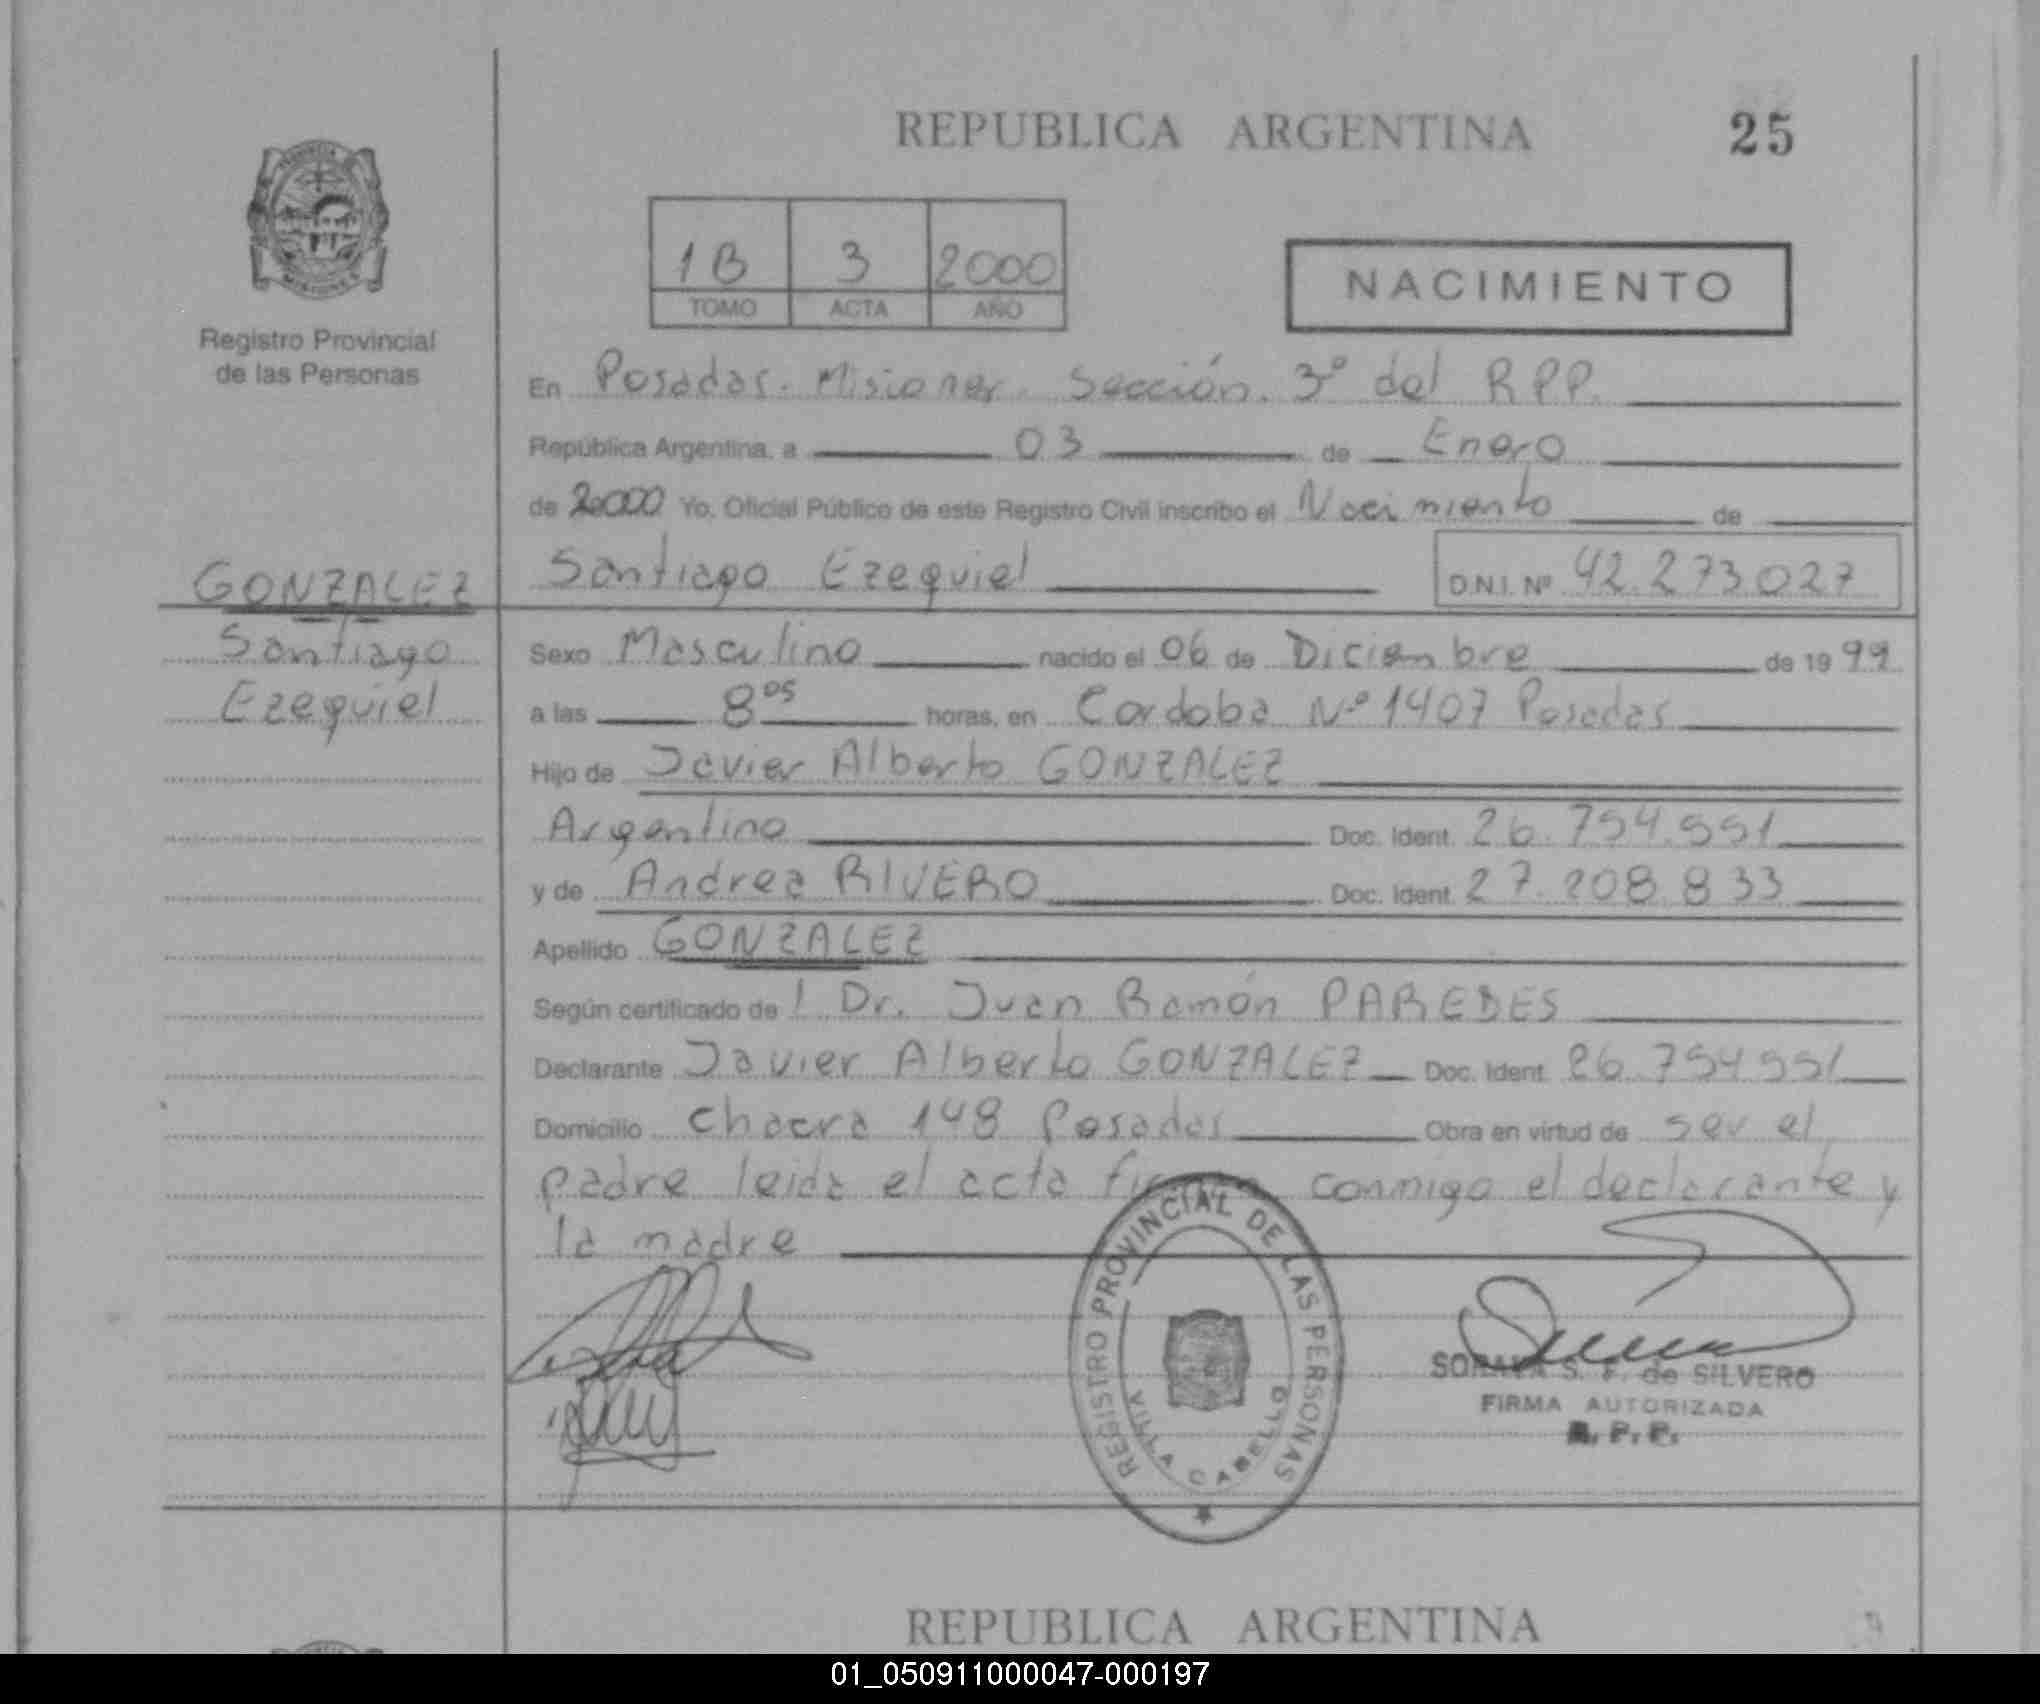 REPUBLICA ARGENTINA 25
1B 3 2000
TOMO ACTA AÑO
NACIMIENTO
PROVINCIA
MISIONES
Registro Provincial
de las Personas
En Posadas. Misiones. Sección. 3º del R.P.P.
República Argentina, a 03 de Enero
de 2000 Yo, Oficial Público de este Registro Civil inscribo el Nacimiento de
GONZALEZ Santiago Ezequiel D.N.I. Nº 42.273.027
Santiago Sexo Masculino nacido el 06 de Diciembre de 19 99
Ezequiel a las 8 05 horas, en Cordoba Nº 1407 Posadas
Hijo de Javier Alberto GONZALEZ
Argentino Doc. Ident. 26.754.551
y de Andrea RIVERO Doc. Ident. 27.208.833
Apellido GONZALEZ
Según certificado de l Dr. Juan Ramón PAREDES
Declarante Javier Alberto GONZALEZ Doc. Ident. 26.754551
Domicilio Chacra 148 Posadas Obra en virtud de ser el
padre leida el acta conmigo el declarante y
la madre
REGISTRO PROVINCIAL DE LAS PERSONAS
VILLA CABELLO
SORAYA S. F. de SILVERO
FIRMA AUTORIZADA
R. P. P.
REPUBLICA ARGENTINA
01_050911000047-000197